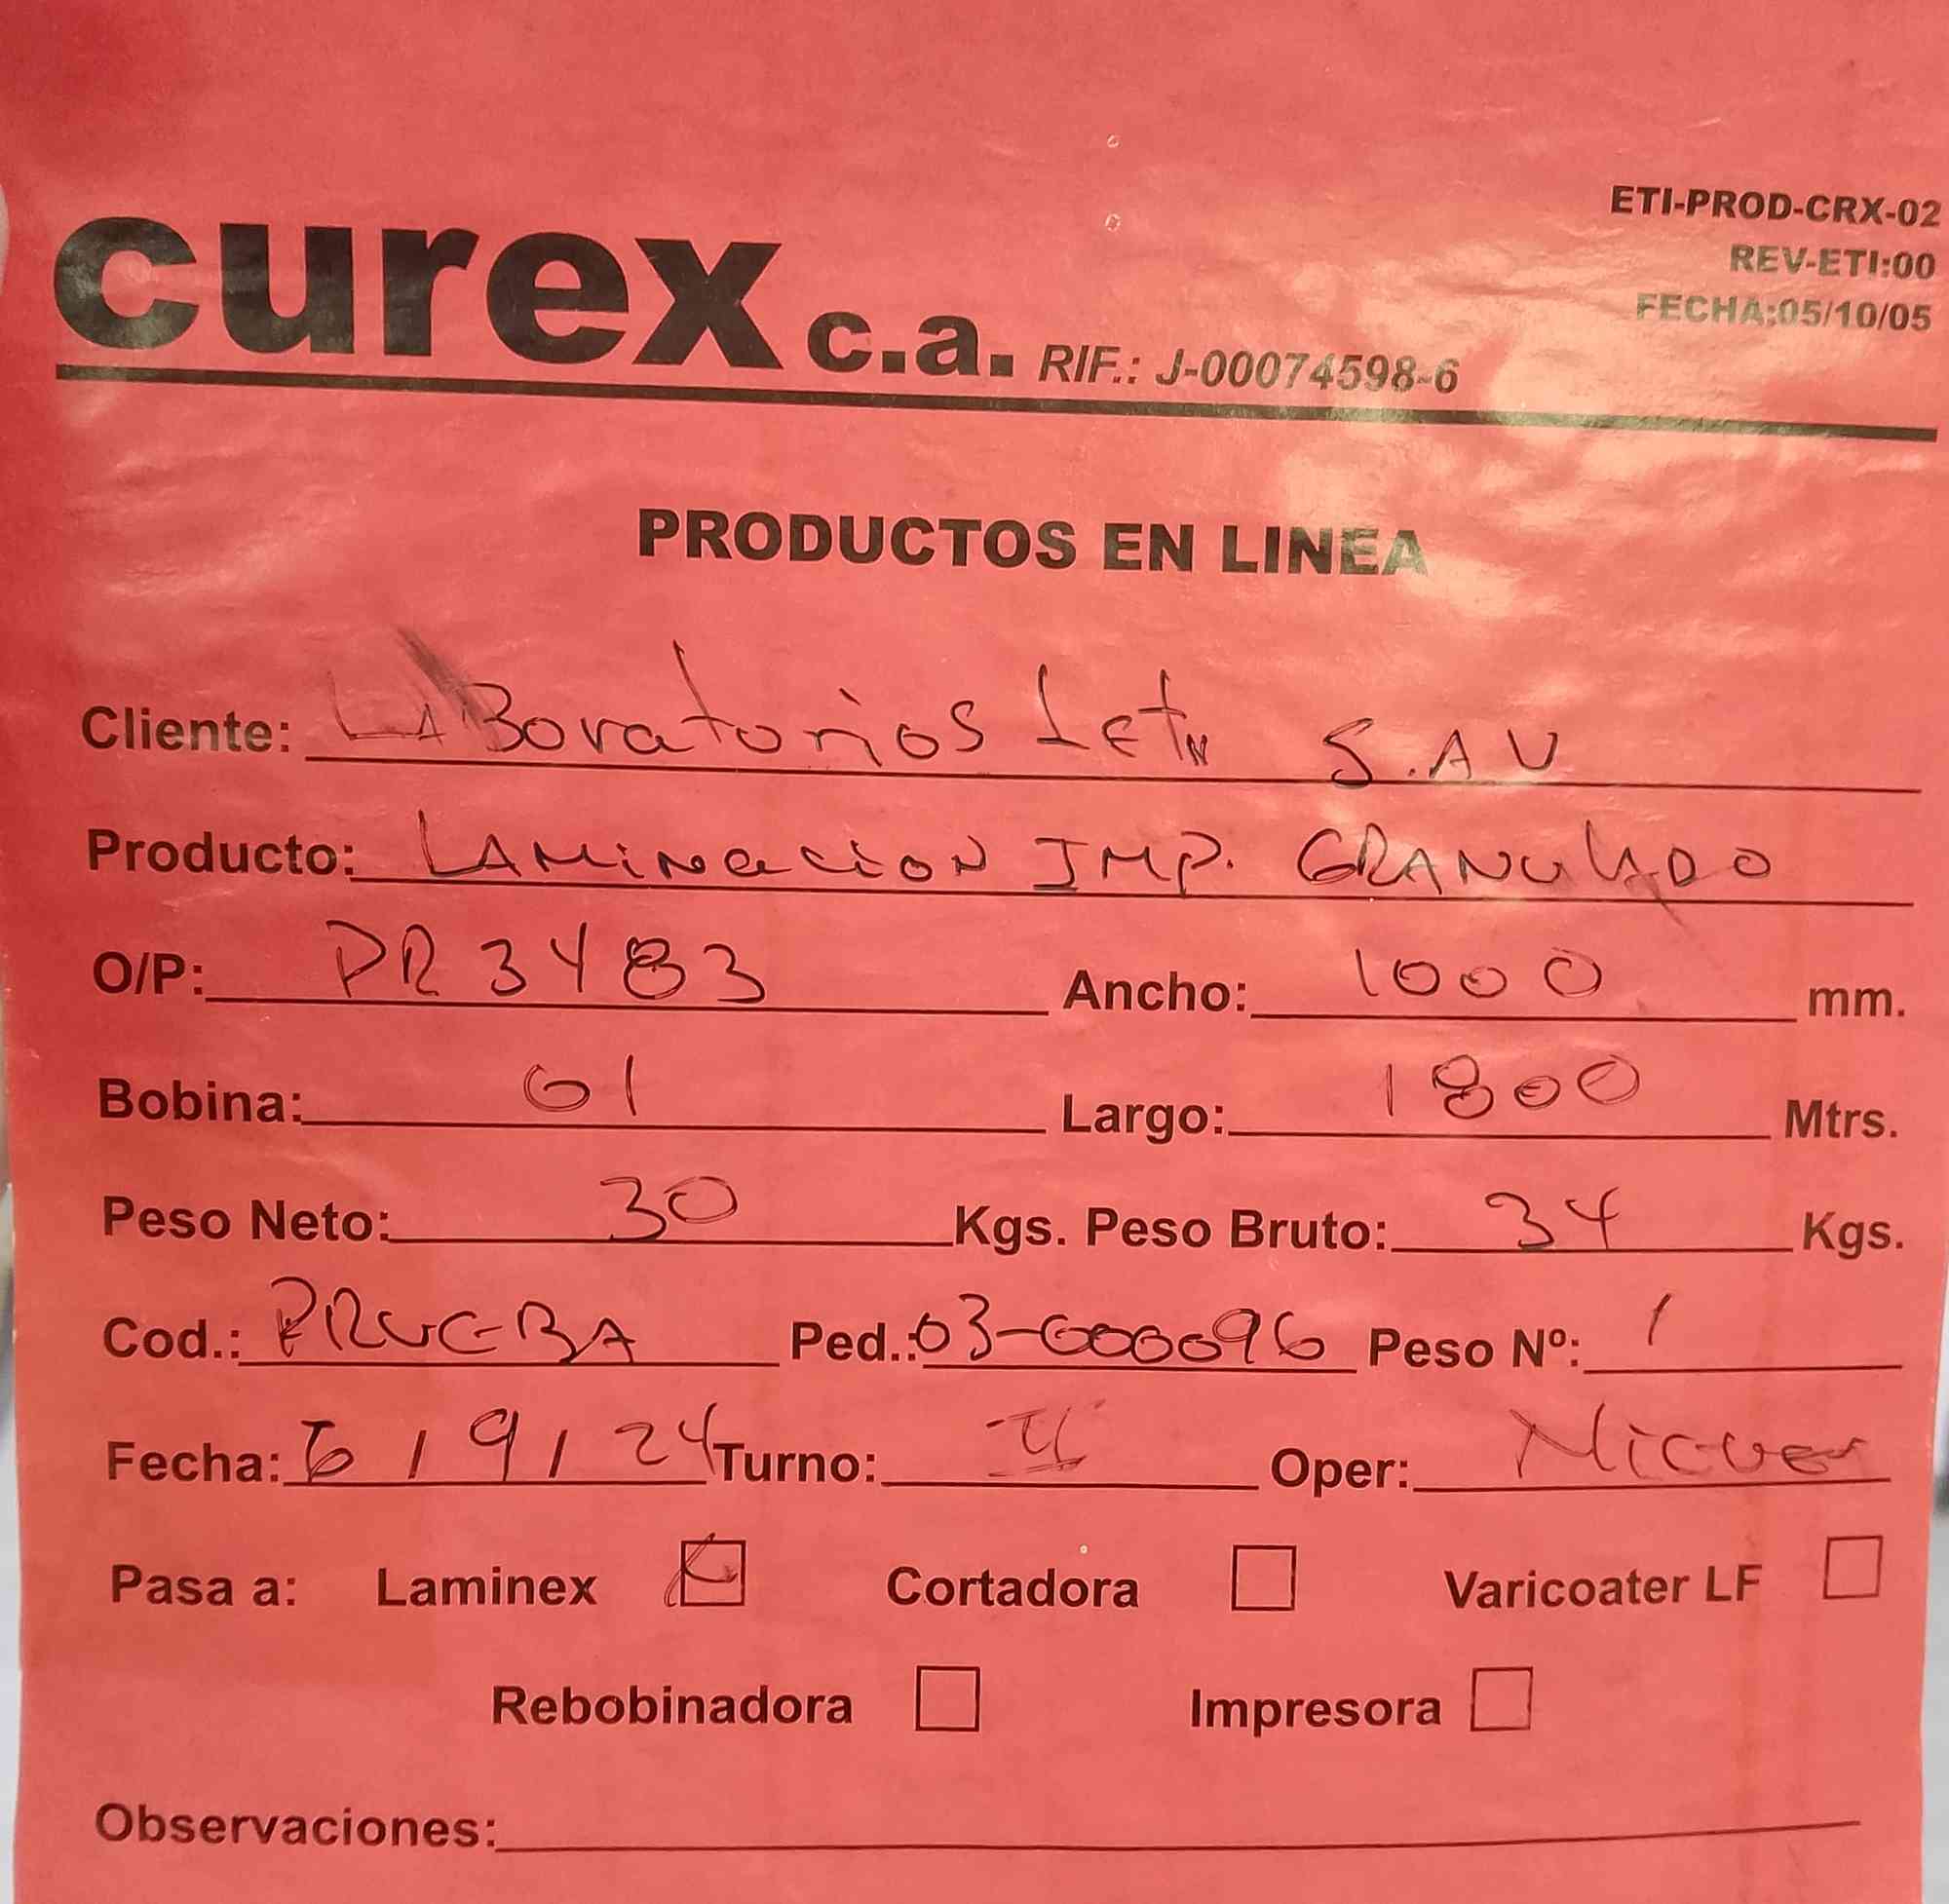 ETI-PROD-CRX-02
REV-ETI:00
FECHA:05/10/05
curex c.a. RIF.: J-00074598-6
PRODUCTOS EN LINEA
Cliente: LABoratorios Letn S.A V
Producto: LAMiNacioN IMP. GRANulADO
O/P: PR3483 Ancho: 1000 mm.
Bobina: 01 Largo: 1800 Mtrs.
Peso Neto: 30 Kgs. Peso Bruto: 34 Kgs.
Cod.: PRUEBA Ped.: 03-000096 Peso Nº: 1
Fecha: 6 / 9 / 24 Turno: II Oper: Miguel
Pasa a: Laminex Cortadora Varicoater LF
Rebobinadora Impresora
Observaciones: